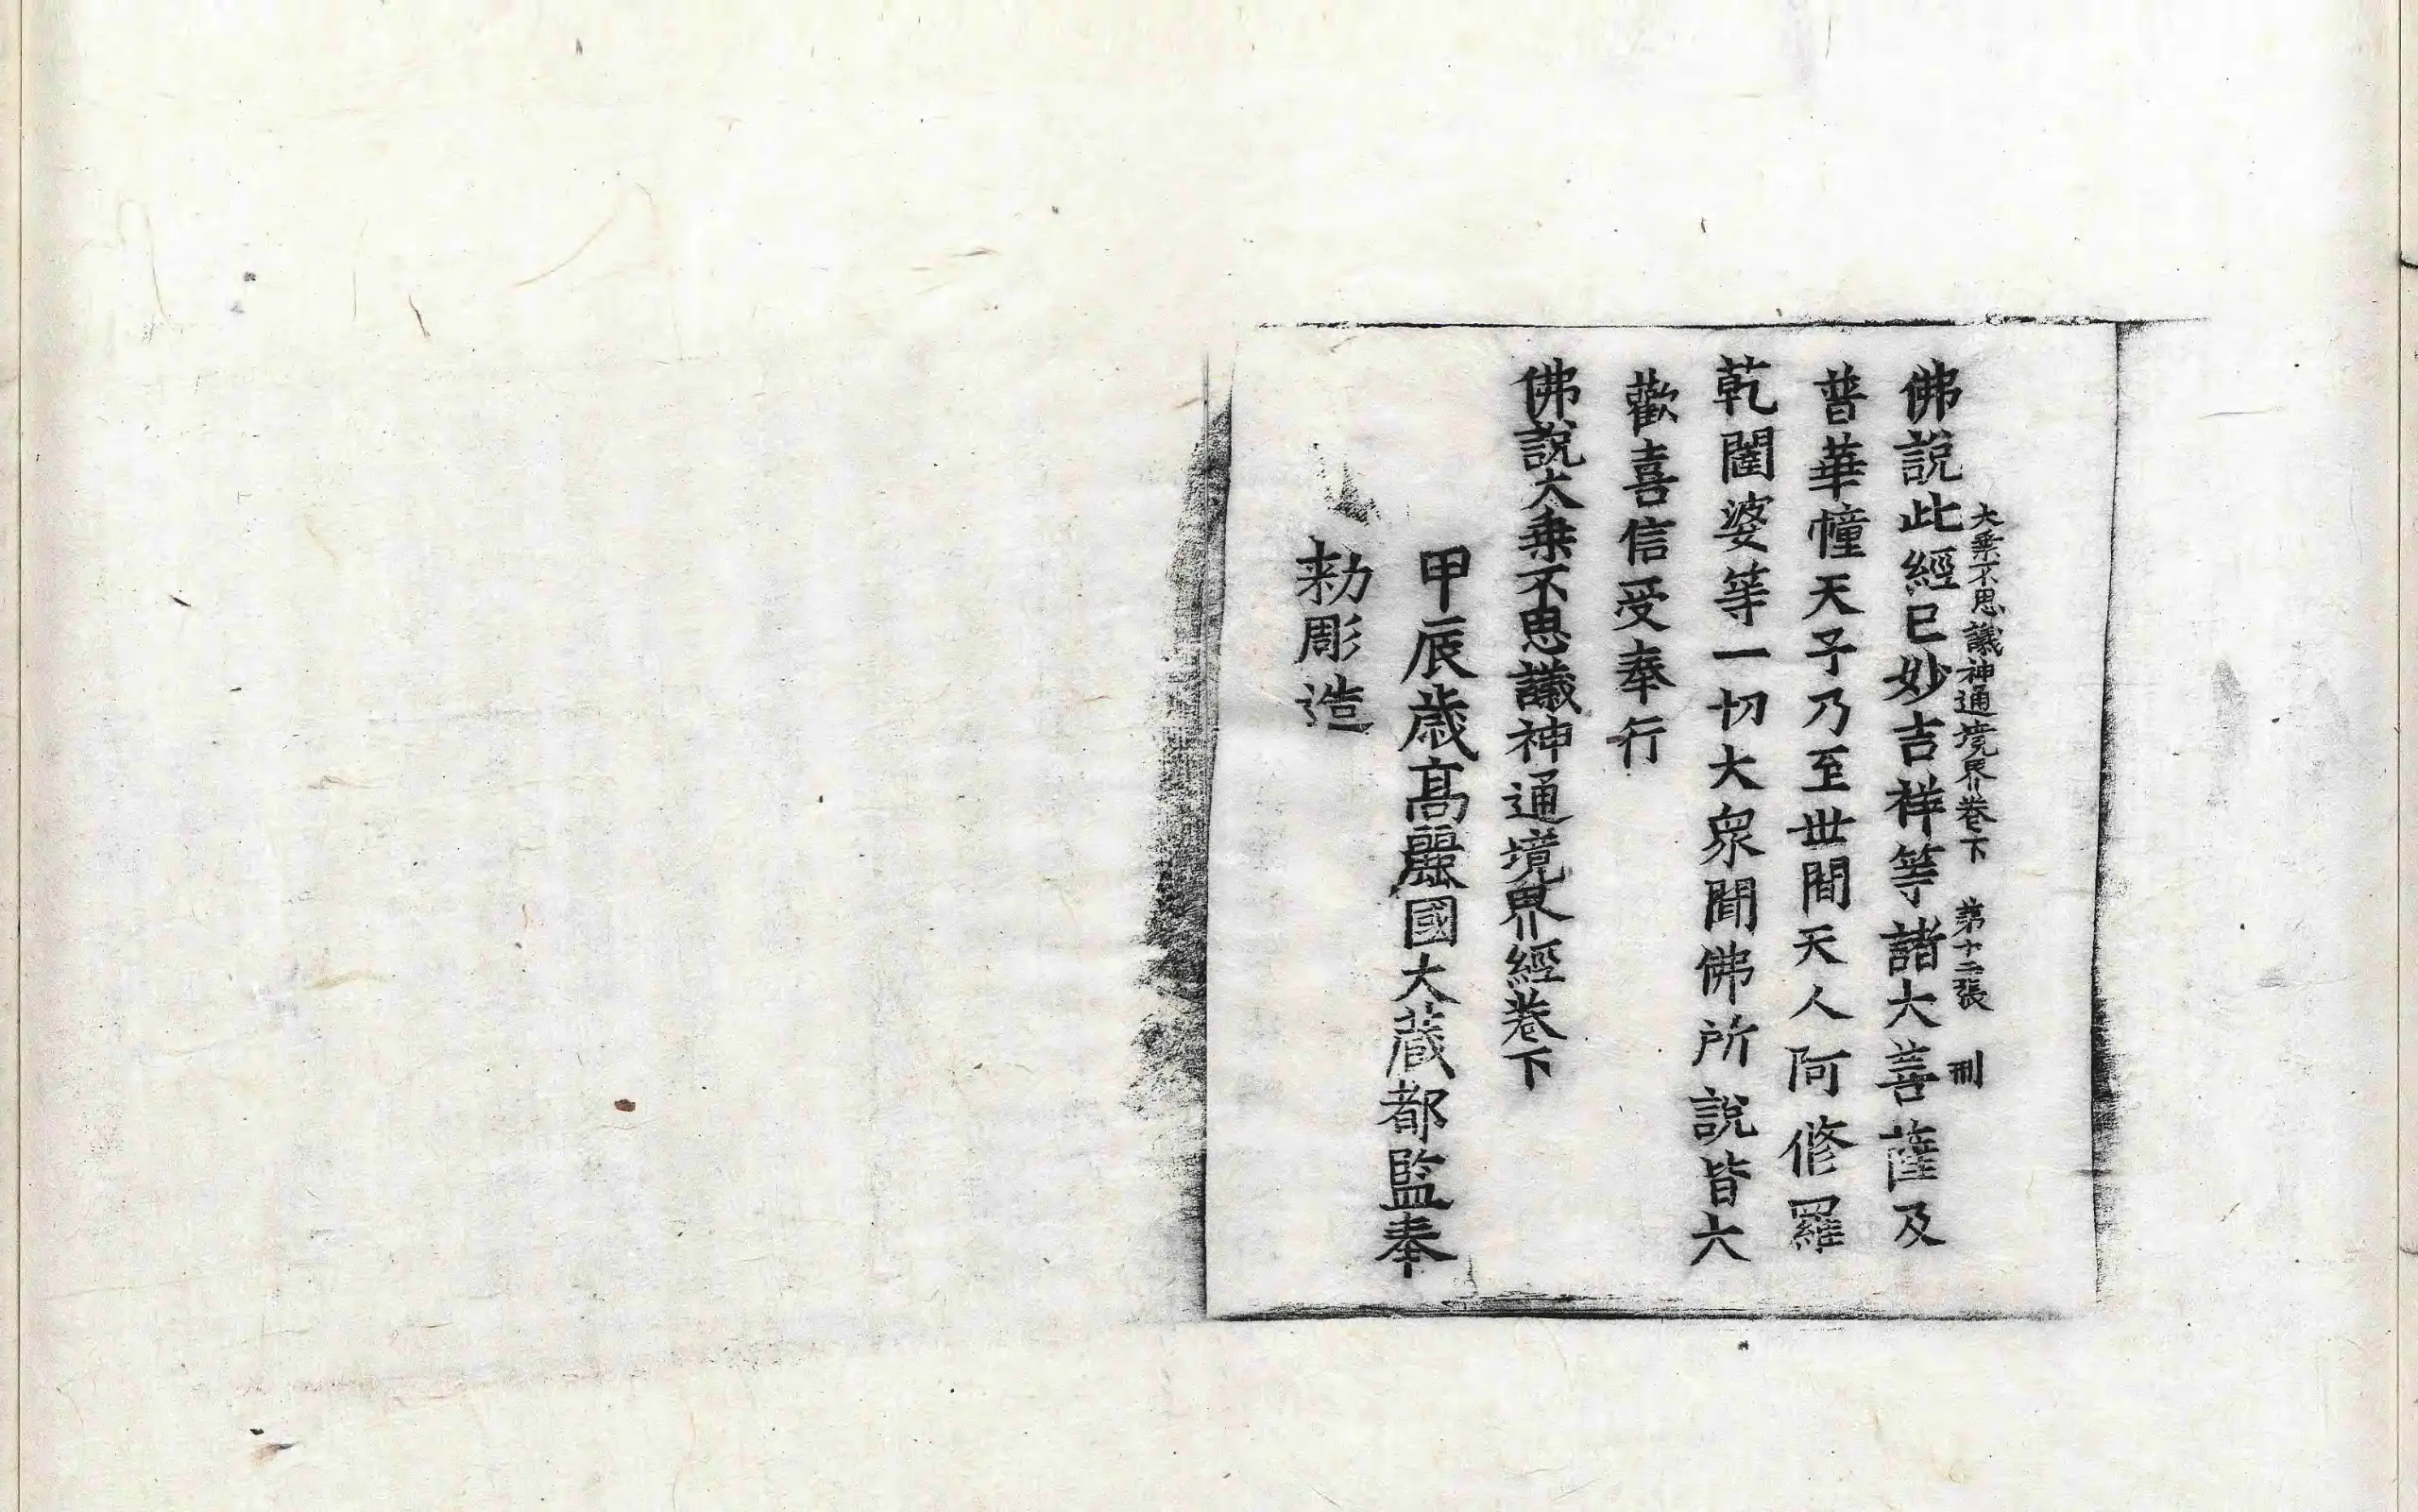 大乗不思議神通境界卷下 第十二張 刑
佛說此經已妙吉祥等諸大菩薩及
普華幢天子乃至世間天人阿修羅
乾闥婆等一切大衆聞佛所說皆大
歡喜信受奉行
佛說大乗不思議神通境界經卷下
甲辰歲高麗國大藏都監奉
勅彫造